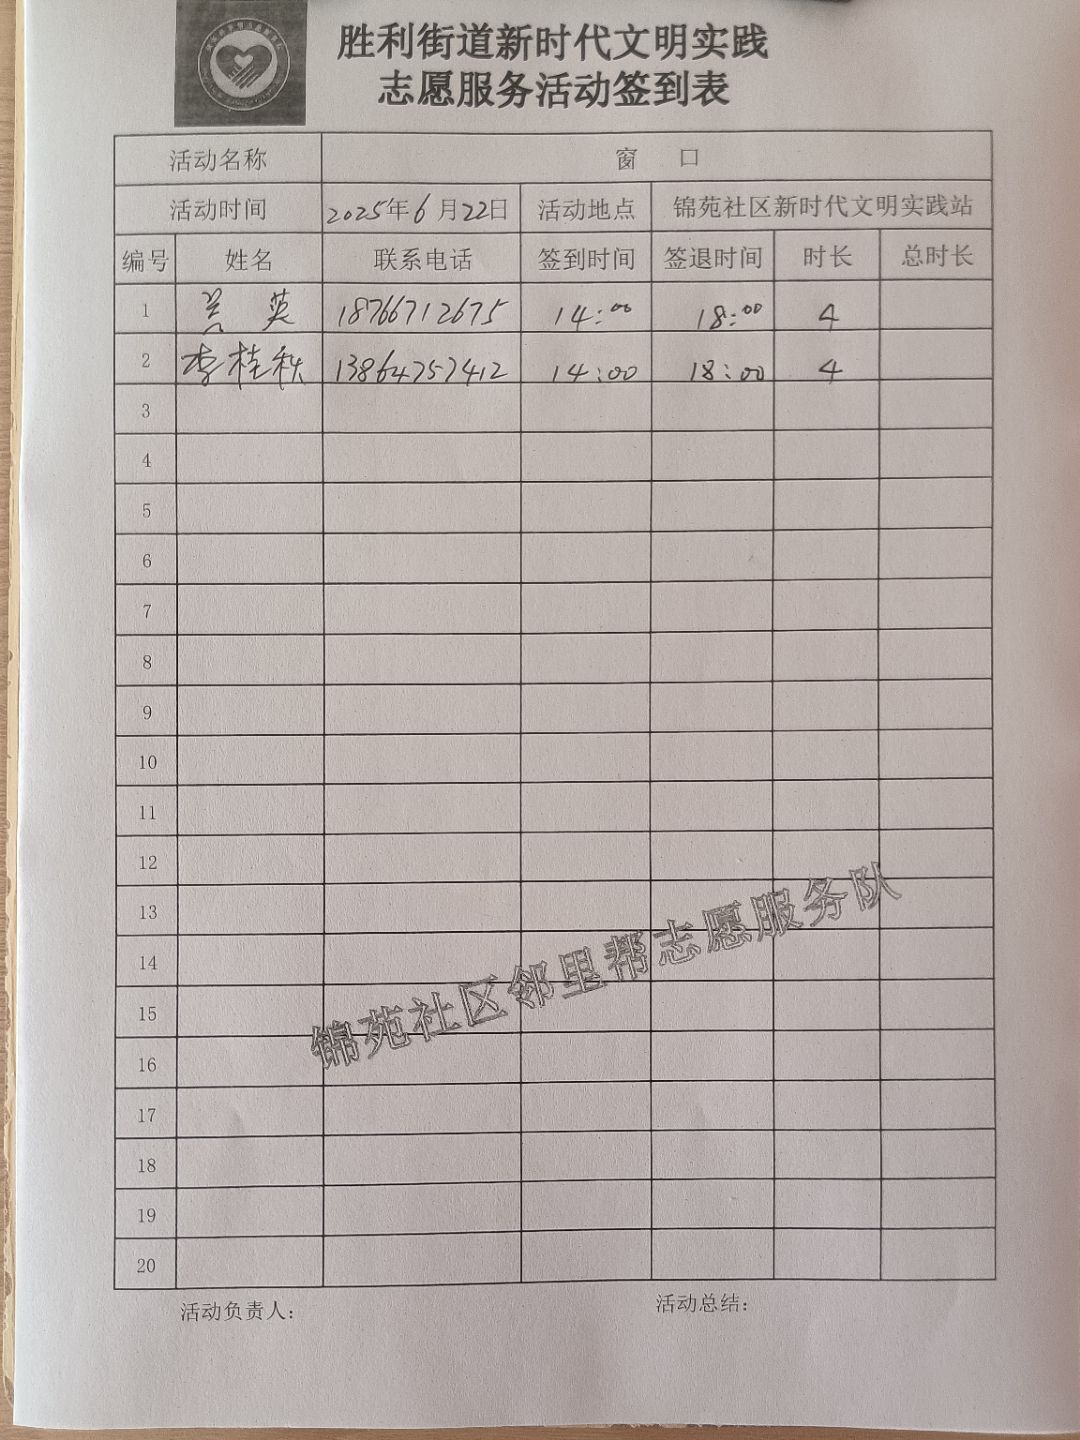 胜利街道新时代文明实践
志愿服务活动签到表
活动名称 窗 口
活动时间 2025年6月22日 活动地点 锦苑社区新时代文明实践站
编号 姓名 联系电话 签到时间 签退时间 时长 总时长
1 英 18766712675 14:00 18:00 4
2 李桂秋 13864757412 14:00 18:00 4
3
4
5
6
7
8
9
10
11
12
13
14
15
16
17
18
19
20
锦苑社区邻里帮志愿服务队
活动负责人: 活动总结: